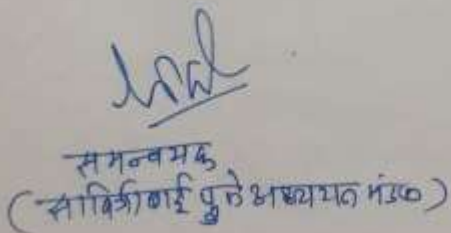 समन्वयक
(सावित्रीबाई फुले अध्ययन मंडळ)